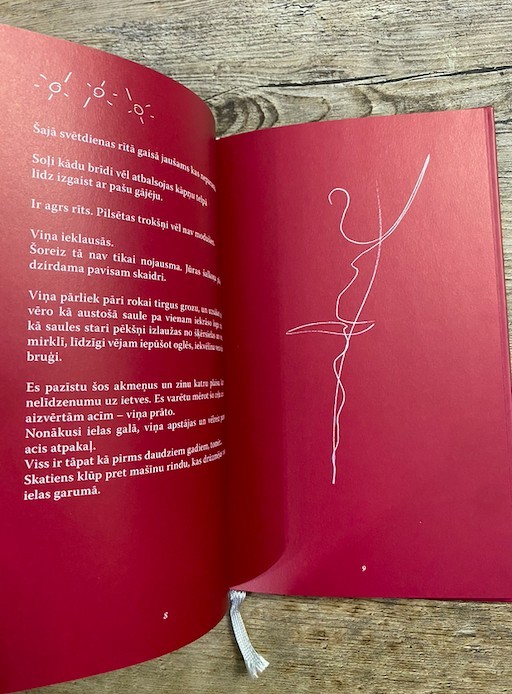 Šajā svētdienas rītā gaisā jaušams kas
Soļi kādu brīdi vēl atbalsojas kāpņu telpā
līdz izgaist ar pašu gājēju.
Ir agrs rīts. Pilsētas trokšņi vēl nav
Viņa ieklausās.
Šoreiz tā nav tikai nojausma. Jūras
dzirdama pavisam skaidri.
Viņa pārliek pāri rokai tirgus grozu, un
vēro kā austošā saule pa vienam iekrāso
kā saules stari pēkšņi izlaužas no
mirklī, līdzīgi vējam iepūšot oglēs,
bruģi.
Es pazīstu šos akmeņus un zinu katru
nelīdzenumu uz ietves. Es varētu mērot šo
aizvērtām acīm – viņa prāto.
Nonākusi ielas galā, viņa apstājas un
acis atpakaļ.
Viss ir tāpat kā pirms daudziem gadiem, tomēr.
Skatiens klūp pret mašīnu rindu, kas
ielas garumā.
9